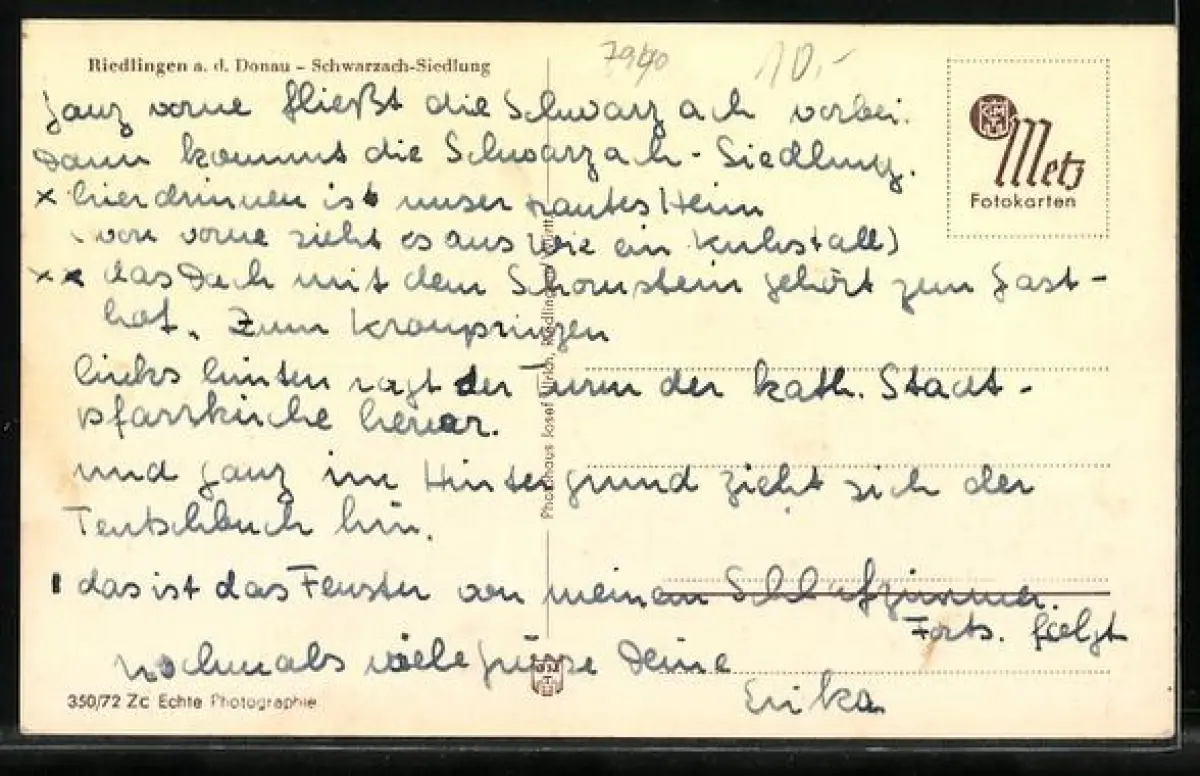 Riedlingen a. d. Donau – Schwarzach-Siedlung
7940
10,-
Metz
Fotokarten
ganz vorne fließt die Schwarzach vorbei.
Dann kommt die Schwarzach-Siedlung.
x hier drinnen ist unser trautes Heim
(von vorne sieht es aus wie ein Kuhstall)
xx das Dach mit dem Schornstein gehört zum Gast-
hof. Zum Kronprinzen
links hinten ragt der Turm der kath. Stadt-
pfarrkirche hervor.
und ganz im Hintergrund zieht sich der
Teutschbuch hin.
I das ist das Fenster von meinem Schlafzimmer.
Forts. folgt
nochmals viele Grüsse Deine
Erika
Photohaus Josef Ulrich, Riedlingen
350/72 Zc Echte Photographie